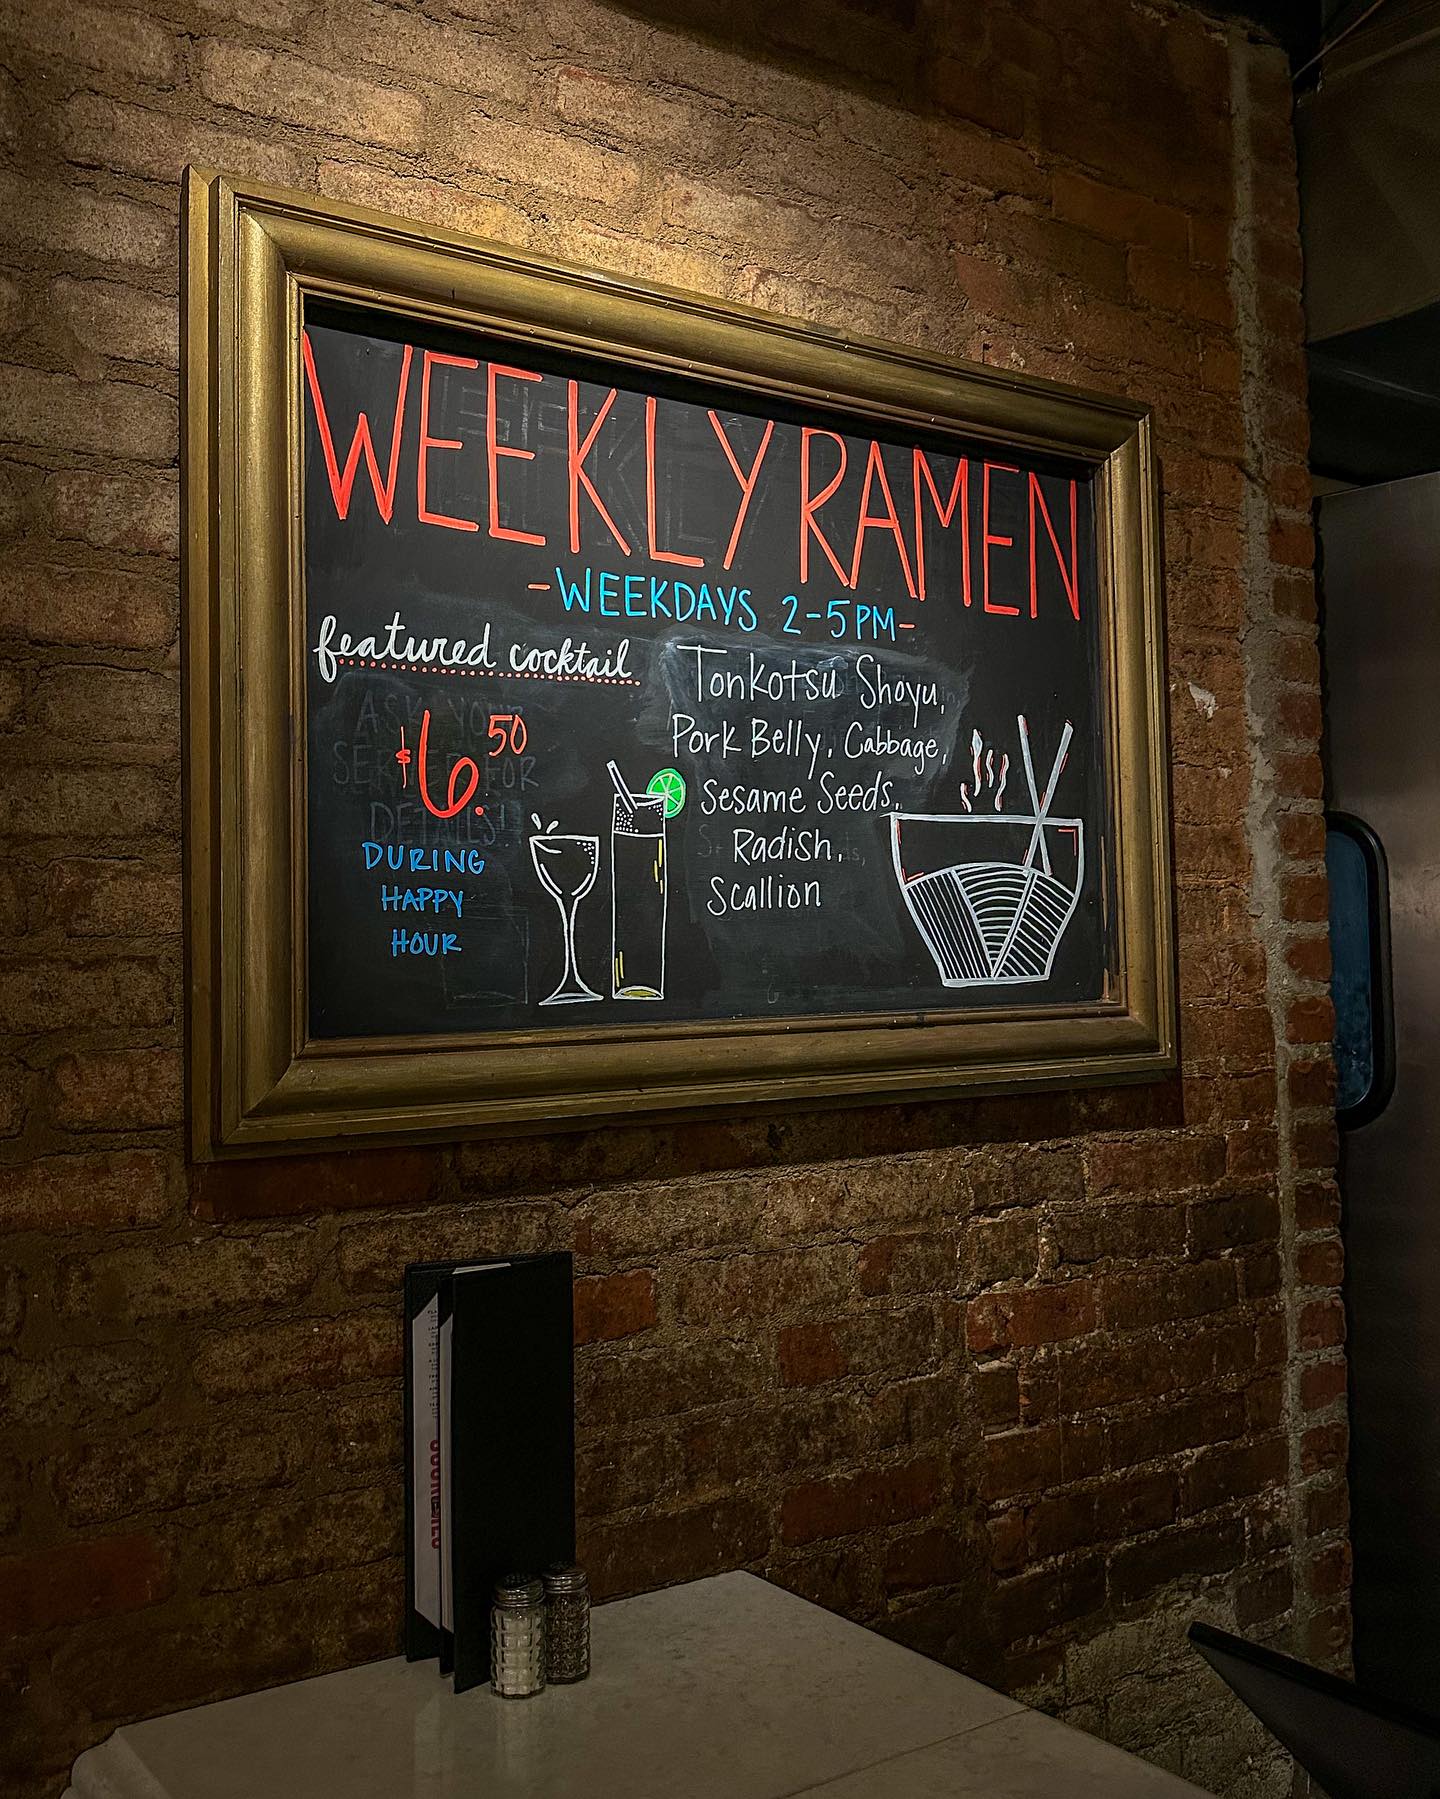 WEEKLY RAMEN
-WEEKDAYS 2-5PM-
featured cocktail
$6.50
DURING
HAPPY
HOUR
Tonkotsu Shoyu,
Pork Belly, Cabbage,
Sesame Seeds,
Radish,
Scallion
ASK YOUR
SERVER FOR
DETAILS!